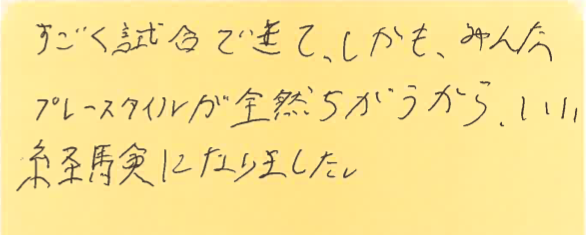 すごく試合できて、しかも、みんな
プレースタイルが全然ちがうから、いい
経験になりました。